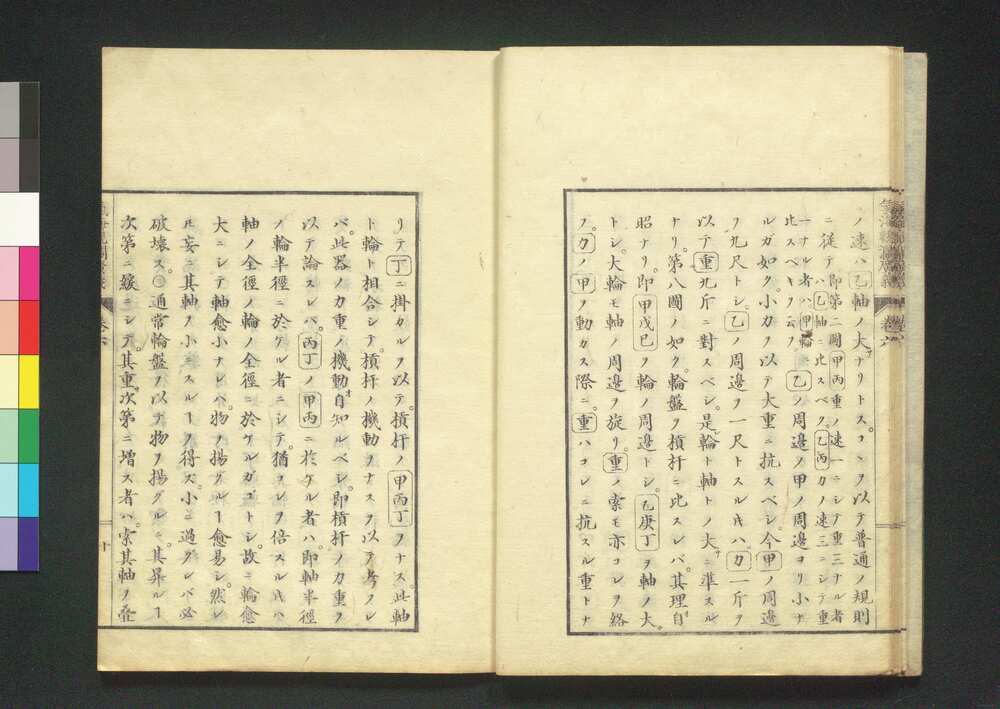 ノ速ハ乙軸ノ大ナリトス。コヽヲ以テ普通ノ規則
ニ從テ即第二圖甲丙重ノ速一ニシテ重三ナル者
ハ乙軸ニ比スベク。乙丙カノ速三ニシテ重
一ナル者ハ甲輪
比スベキヲ云フ
乙ノ周邊ノ甲ノ周邊ヨリ小ナ
ルガ如ク。小カヲ以テ大重ニ抗スベシ。今甲ノ周邊
ヲ九尺トシ。乙ノ周邊ヲ一尺トスルキハ。カ一斤ヲ
以テ重九斤ニ對スベシ。是輪ト軸トノ大ニ準スル
ナリ。第八圖ノ如ク。輪盤ヲ槓杆ニ比スレバ。其理自
昭ナリ。即甲戊巳ヲ輪ノ周邊トシ。乙庚丁ヲ軸ノ大
トシ。大輪モ軸ノ周邊ヲ旋リ。重ノ索モ亦コレヲ絡
フ。カノ甲ヲ動カス際ニ。重ハコレニ抗スル重トナ
リテ丁ニ掛カルヲ以テ。槓杆ノ甲丙丁ヲナス。此軸
ト輪ト相合シテ。槓杆ノ機動ヲナスヲ以テ考フレ
バ。此器ノカ重ノ機動自知ルベシ。即槓杆ノカ重ヲ
以テ論スレバ。丙丁ノ甲丙ニ於ケル者ハ。即軸半徑
ノ輪半徑ニ於ケル者ニシテ。猶コレヲ倍スルキハ
軸ノ全徑ノ輪ノ全徑ニ於ケルガゴトシ。故ニ輪愈
大ニシテ軸愈小ナレバ。物ヲ揚グルヿ愈易シ。然レ
ル妄ニ其軸ヲ小ニスルヿヲ得ズ。小ニ過グレバ必
破壞ス。○通常輪盤ヲ以テ物ヲ揚グルニ。其昇ルヿ
次第ニ緩ニシテ。其重次第ニ增ス者ハ。索其軸ノ疊
十